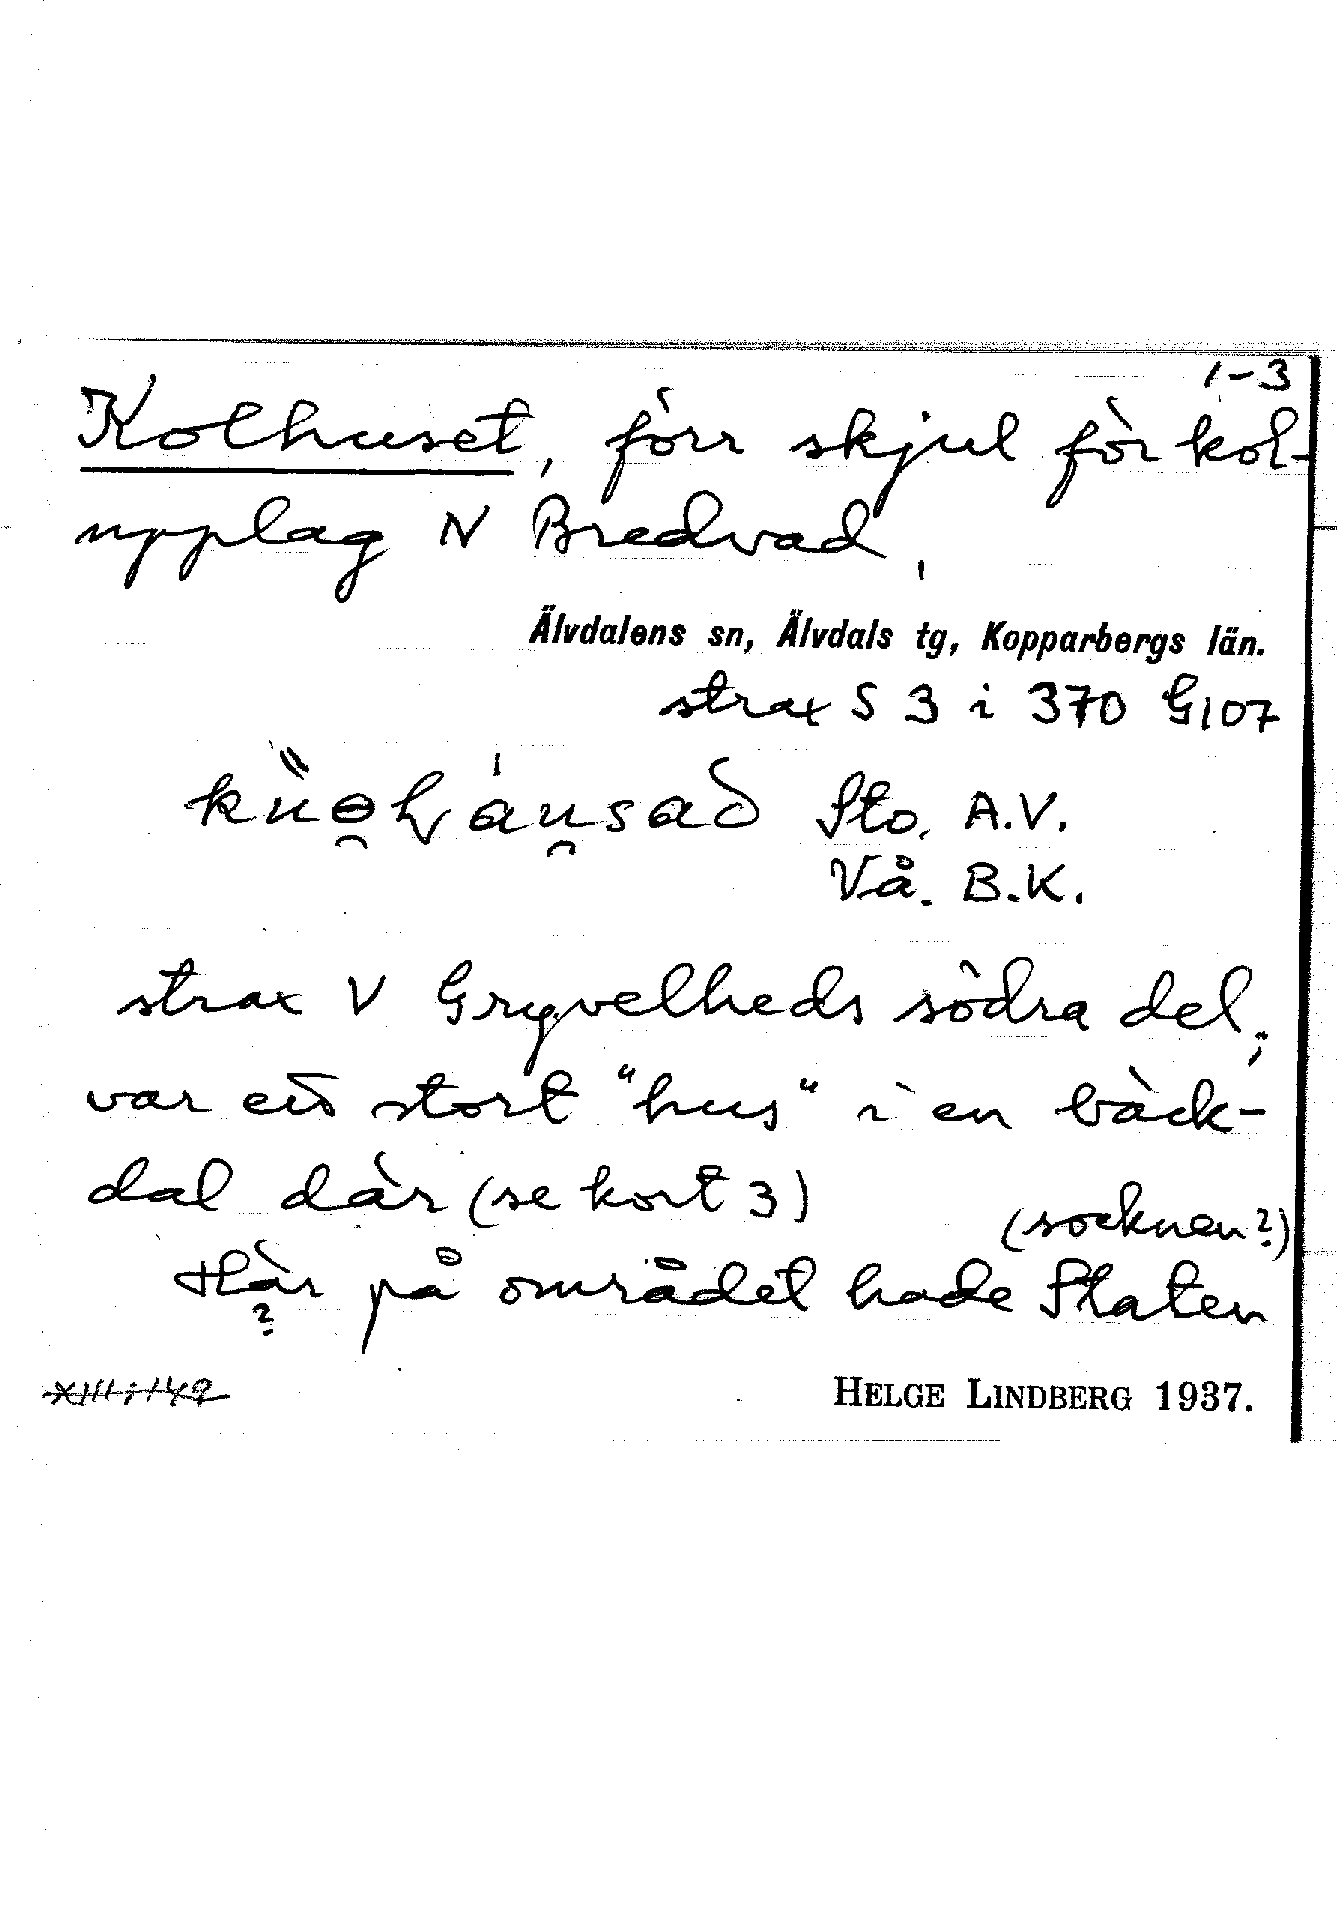 1-3
Kolhuset, förr skjul för kol-
upplag N Bredvad,
Älvdalens sn, Älvdals tg, Kopparbergs län.
strax S 3 i 370 G107
Sto. A.V.
Vå. B.K.
strax V Gryvelheds södra del;
var ett stort "hus" i en bäck-
dal där (se kort 3)
(socknen?)
Här på området hade Staten
?
XIII:149
HELGE LINDBERG 1937.